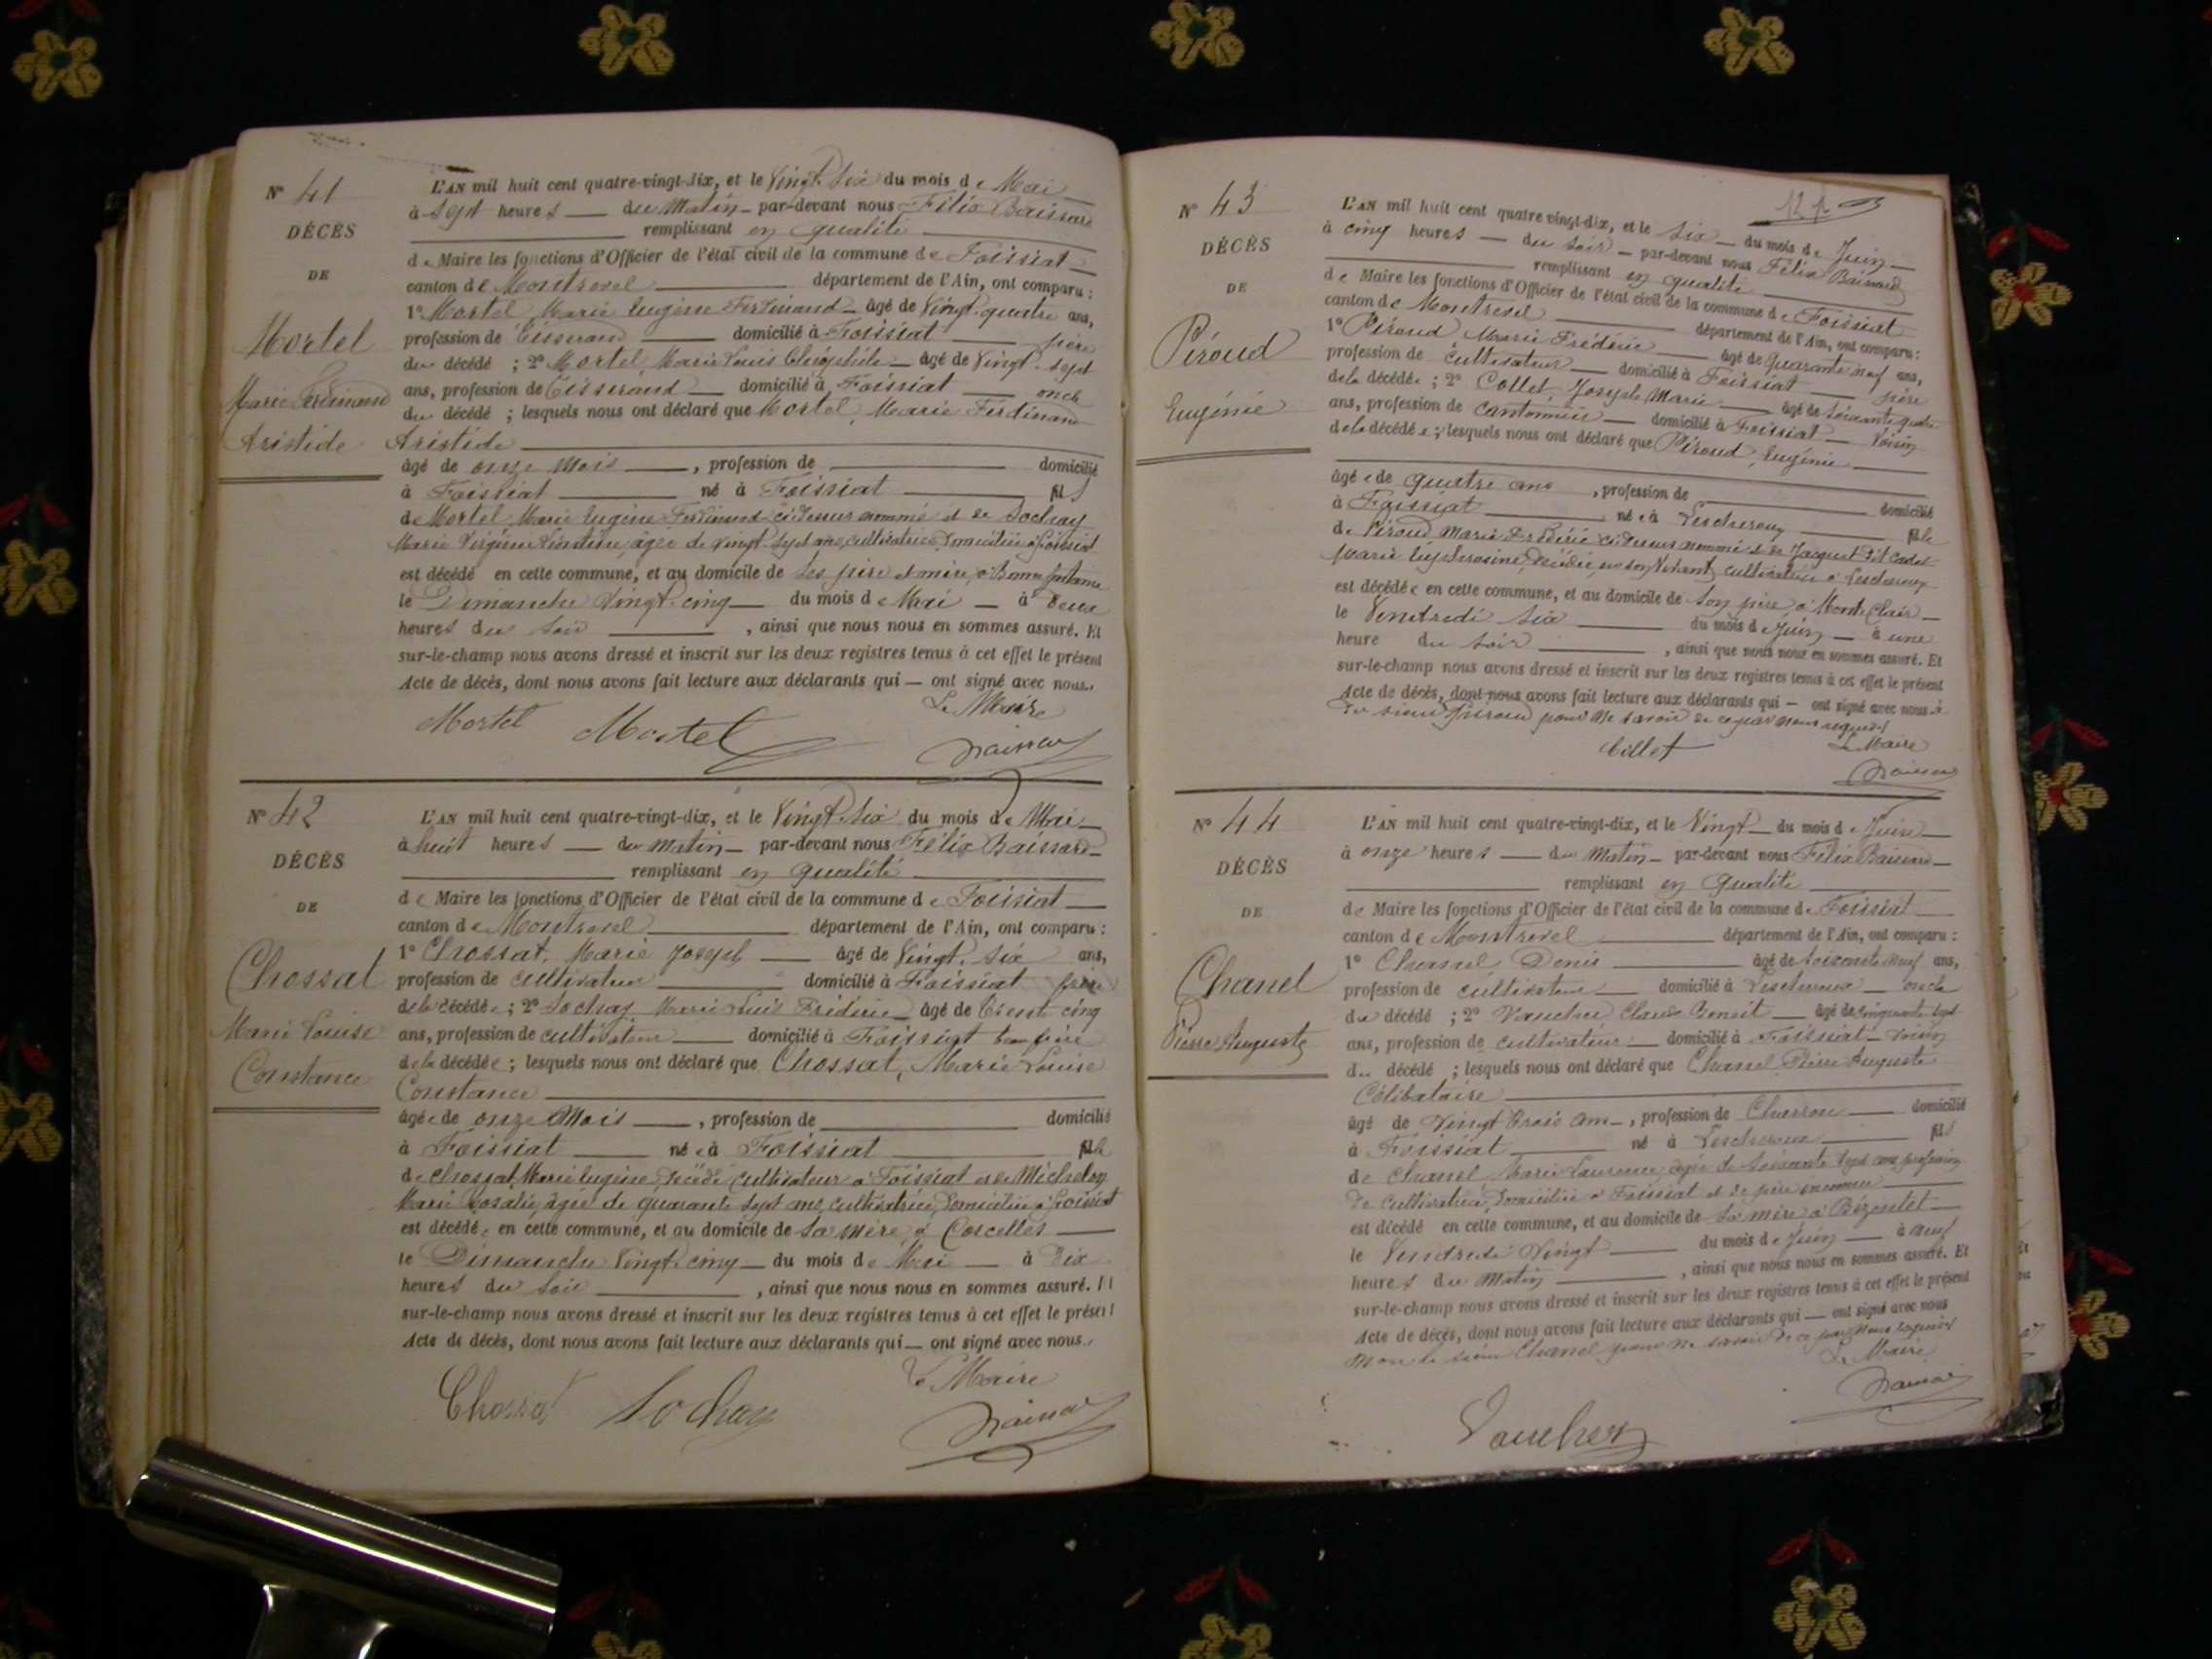 N° 41
DÉCÈS
DE
Mortel
Marie Ferdinand
Aristide
L'AN mil huit cent quatre-vingt-dix, et le Vingt Six du mois de Mai
à Sept heures du Matin par-devant nous Félix Baissard
remplissant en qualité
de Maire les fonctions d'Officier de l'état civil de la commune de Foissiat
canton de Montrevel département de l'Ain, ont comparu :
1° Mortel Marie Eugène Ferdinand âgé de Vingt quatre ans,
profession de Tisserand domicilié à Foissiat père
du décédé ; 2° Mortel, Marie Louis Théophile âgé de Vingt sept
ans, profession de Tisserand domicilié à Foissiat oncle
du décédé ; lesquels nous ont déclaré que Mortel, Marie Ferdinand
Aristide
âgé de onze Mois , profession de domicilié
à Foissiat né à Foissiat fils
de Mortel Marie Eugène Ferdinand ci-dessus nommé et de Sochay
Marie Virginie âgée de vingt sept ans, cultivatrice, Domiciliée à Foissiat
est décédé en cette commune, et au domicile de Ses père et mère, à Bonne fontaine
le Dimanche Vingt cinq du mois de Mai à Deux
heures du Soir , ainsi que nous nous en sommes assuré. Et
sur-le-champ nous avons dressé et inscrit sur les deux registres tenus à cet effet le présent
Acte de décès, dont nous avons fait lecture aux déclarants qui ont signé avec nous.
Le Maire
Mortel Mortel Baissard
N° 42
DÉCÈS
DE
Chossat
Marie Louise
Constance
L'AN mil huit cent quatre-vingt-dix, et le Vingt Six du mois de Mai
à huit heures du Matin par-devant nous Félix Baissard
remplissant en qualité
de Maire les fonctions d'Officier de l'état civil de la commune de Foissiat
canton de Montrevel département de l'Ain, ont comparu :
1° Chossat, Marie Joseph âgé de Vingt Six ans,
profession de cultivateur domicilié à Foissiat frère
de la décédée ; 2° Sochay Marie Louis Frédéric âgé de Trente cinq
ans, profession de cultivateur domicilié à Foissiat beau frère
de la décédée ; lesquels nous ont déclaré que Chossat, Marie Louise
Constance
âgée de onze Mois , profession de domicilié
à Foissiat née à Foissiat fille
de Chossat, Marie Eugène, Décédé cultivateur à Foissiat et de Michelon
Marie Rosalie, âgée de quarante Sept ans, cultivatrice, Domiciliée à Foissiat
est décédée en cette commune, et au domicile de Sa mère, à Corcelles
le Dimanche Vingt cinq du mois de Mai à Dix
heures du Soir , ainsi que nous nous en sommes assuré. Et
sur-le-champ nous avons dressé et inscrit sur les deux registres tenus à cet effet le présent
Acte de décès, dont nous avons fait lecture aux déclarants qui ont signé avec nous.
Le Maire
Chossat Sochay Baissard
N° 43
DÉCÈS
DE
Péroud
Eugénie
L'AN mil huit cent quatre-vingt-dix, et le Six du mois de Juin
à cinq heures du Soir par-devant nous Félix Baissard
remplissant en qualité
de Maire les fonctions d'Officier de l'état civil de la commune de Foissiat
canton de Montrevel département de l'Ain, ont comparu :
1° Péroud Marie Frédéric âgé de quarante neuf ans,
profession de cultivateur domicilié à Foissiat père
de la décédée ; 2° Collet, Joseph Marie âgé de Soixante quatre
ans, profession de cantonnier domicilié à Foissiat Voisin
de la décédée ; lesquels nous ont déclaré que Péroud, Eugénie
âgée de quatre ans , profession de domicilié
à Foissiat née à Lescheroux fille
de Péroud Marie Frédéric ci-dessus nommé et de Jacquet dit Cadet
Marie Euphrosine, Décédée, de son vivant, cultivatrice à Lescheroux
est décédée en cette commune, et au domicile de Son père, à Montclair
le Vendredi Six du mois de Juin à une
heure du Soir , ainsi que nous nous en sommes assuré. Et
sur-le-champ nous avons dressé et inscrit sur les deux registres tenus à cet effet le présent
Acte de décès, dont nous avons fait lecture aux déclarants qui ont signé avec nous
sieur Péroud pour ne savoir de ce par nous requis
Collet Le Maire
Baissard
N° 44
DÉCÈS
DE
Chanel
Pierre Auguste
L'AN mil huit cent quatre-vingt-dix, et le Vingt du mois de Juin
à onze heures du Matin par-devant nous Félix Baissard
remplissant en qualité
de Maire les fonctions d'Officier de l'état civil de la commune de Foissiat
canton de Montrevel département de l'Ain, ont comparu :
1° Chanel Denis âgé de Soixante neuf ans,
profession de cultivateur domicilié à Lescheroux oncle
du décédé ; 2° Vaucher Claude Benoit âgé de cinquante sept
ans, profession de cultivateur domicilié à Foissiat Voisin
du décédé ; lesquels nous ont déclaré que Chanel Pierre Auguste
Célibataire
âgé de Vingt trois ans , profession de Charron domicilié
à Foissiat né à Lescheroux fils
de Chanel Marie Laurence, âgée de Soixante Sept ans, profession
de cultivatrice, Domiciliée à Foissiat et de père inconnu
est décédé en cette commune, et au domicile de Sa mère à Bézentet
le Vendredi Vingt du mois de Juin à neuf
heures du Matin , ainsi que nous nous en sommes assuré. Et
sur-le-champ nous avons dressé et inscrit sur les deux registres tenus à cet effet le présent
Acte de décès, dont nous avons fait lecture aux déclarants qui ont signé avec nous
non le sieur Chanel pour ne savoir de ce par nous requis
Le Maire
Vaucher Baissard